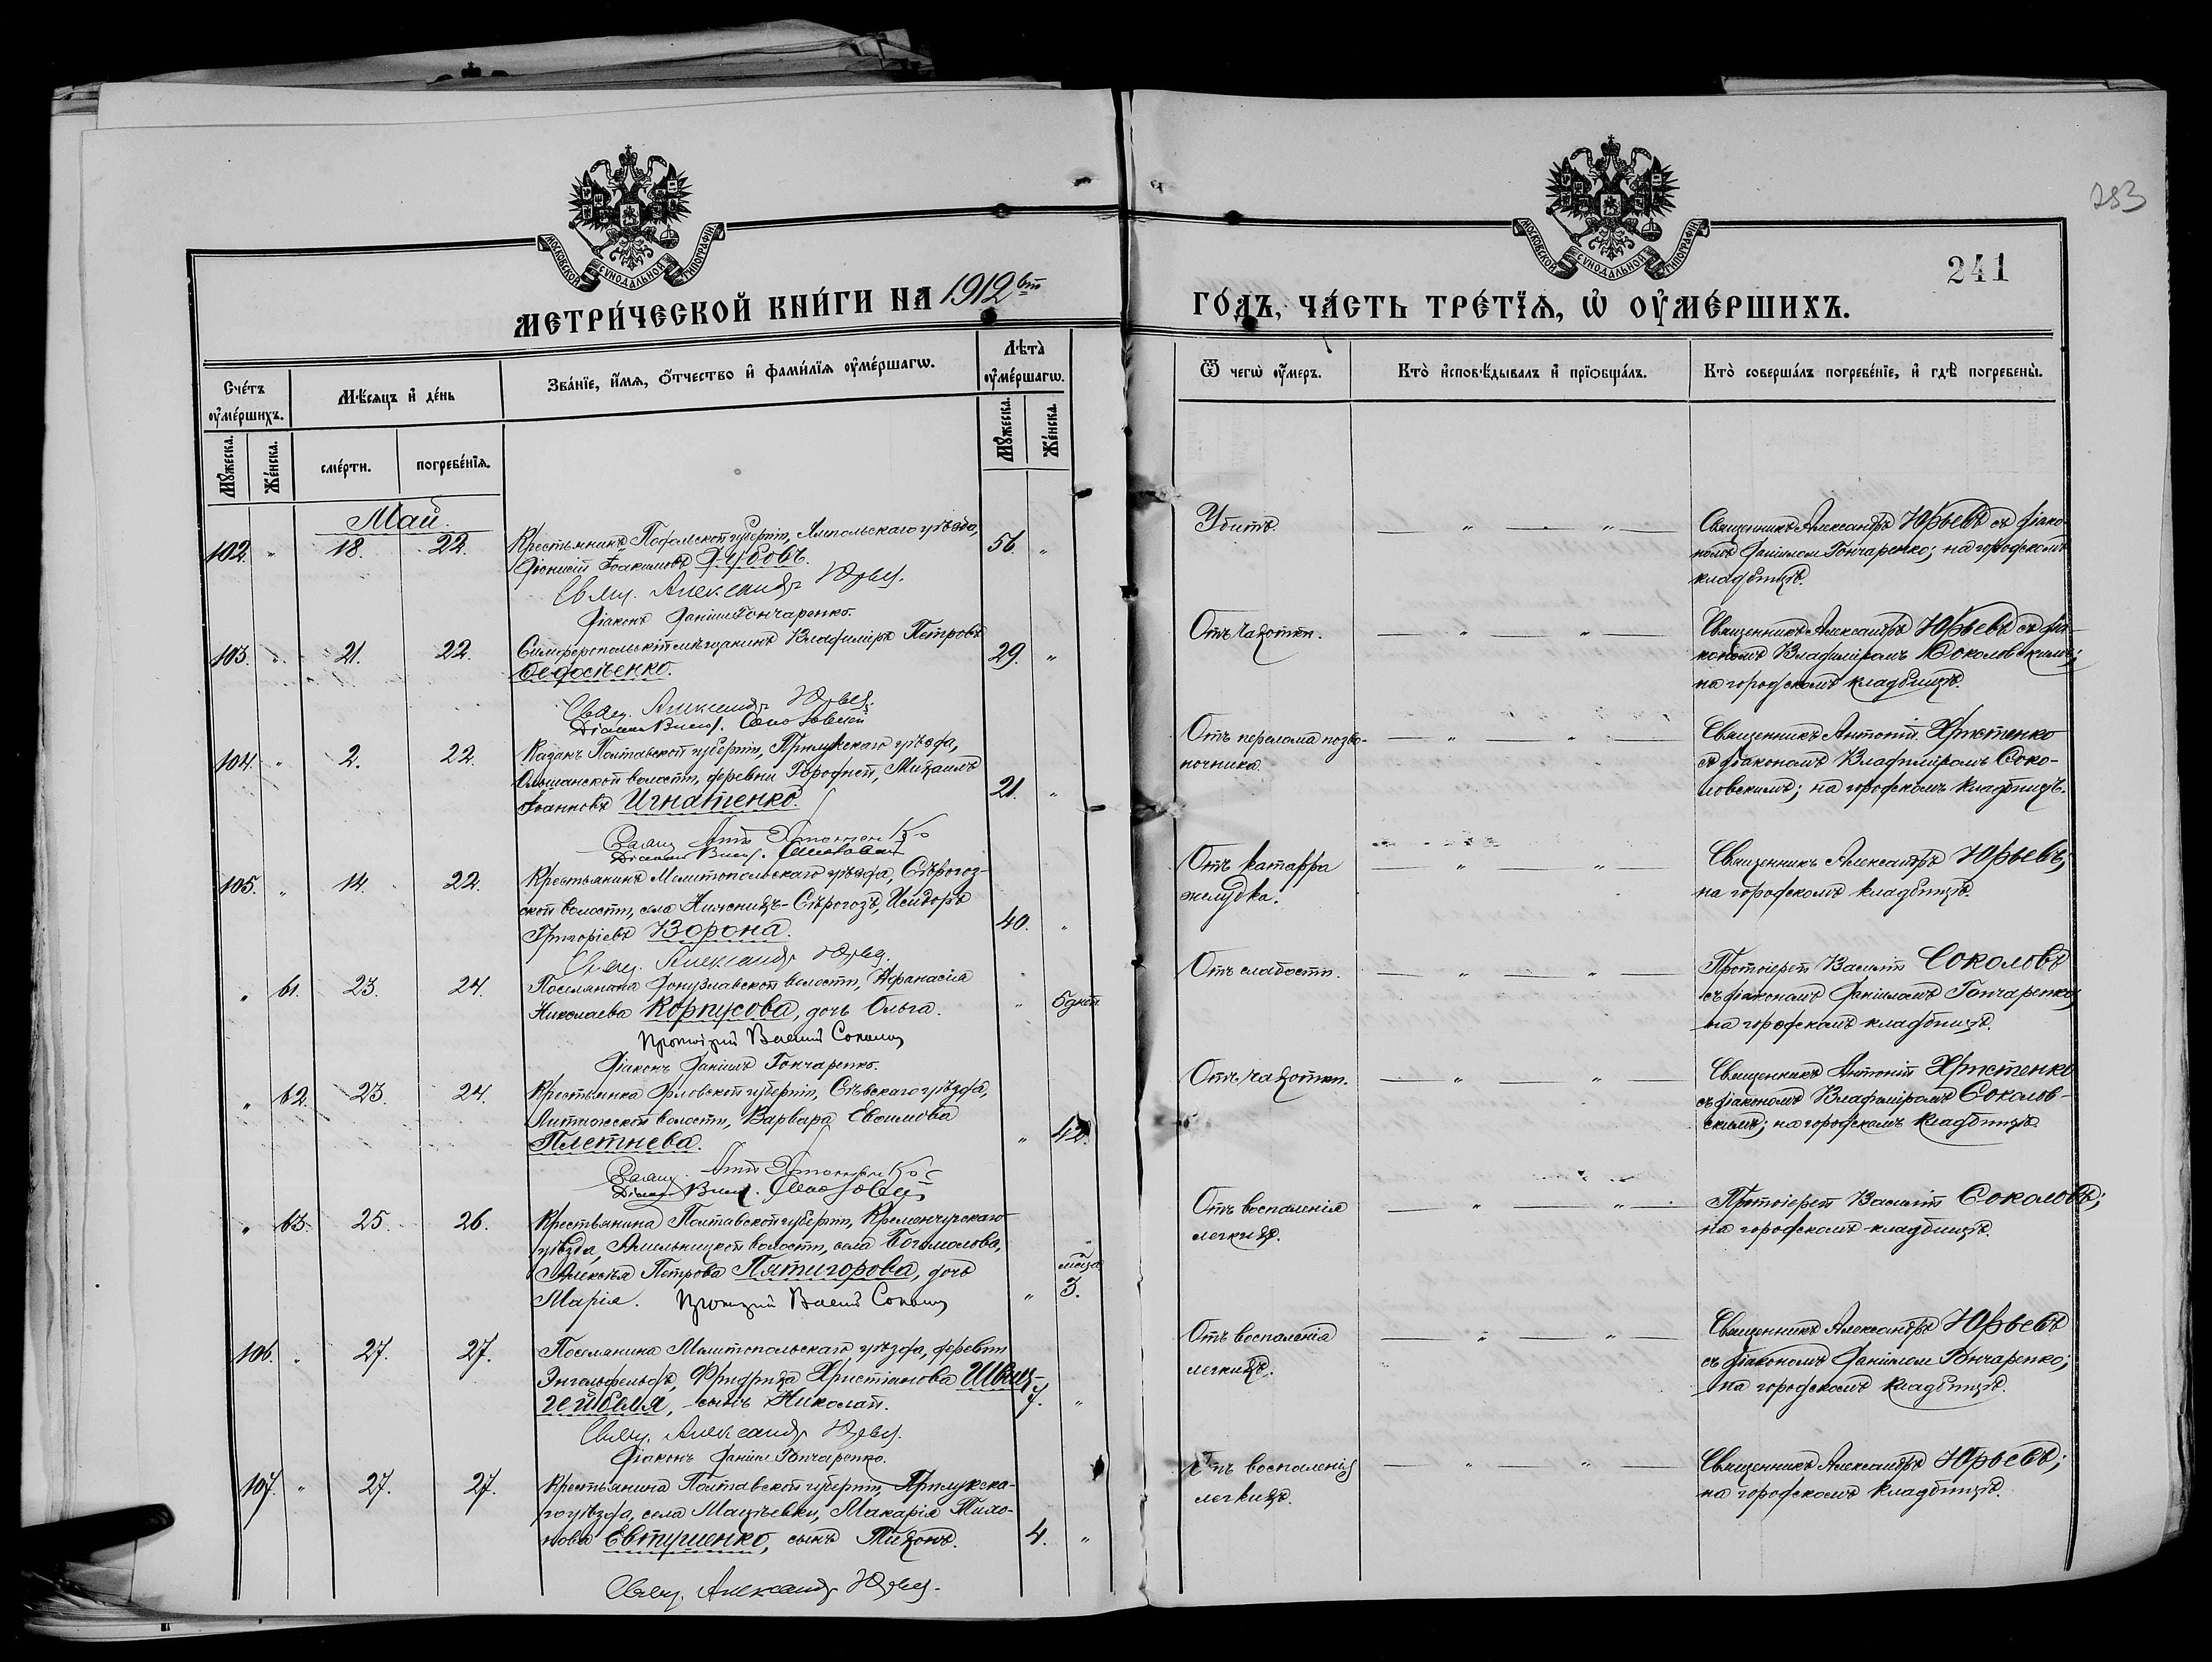 283
241
МОСКОВСКОЙ СѴНОДАЛЬНОЙ ТИПОГРАФІИ
МОСКОВСКОЙ СѴНОДАЛЬНОЙ ТИПОГРАФІИ
МЕТРИ́ЧЕСКОЙ КНИ́ГИ НА 1912й
ГО́ДЪ, ЧА́СТЬ ТРЕ́ТЇѦ, Ѡ҆ ОУ҆МЕ́РШИХЪ.
Сче́тъ оу҆ме́ршихъ.
Мꙋ́жеска.
Же́нска.
Мѣ́сяцъ и҆ де́нь
сме́рти.
погребе́нїѧ.
Зва́нїе, и҆́мѧ, ѻ҆́тчество и҆ фами́лїѧ оу҆ме́ршагѡ.
Лѣ́та̀ оу҆ме́ршагѡ.
Мꙋ́жеска.
Же́нска.
Ѿ чегѡ̀ оу҆́меръ.
Кто̀ и҆сповѣ́дывалъ и҆ прїѻбща́лъ.
Кто̀ соверша́лъ погребе́нїе, и҆ гдѣ̀ погребены̀.
Май.
102. " 18. 22. Крестьянинъ Подольской губерніи, Ямпольскаго уѣзда, 56. "
Діонисій Іоакимовъ Дубовъ.
Свящ. Александръ Юрьев.
Діаконъ Даніилъ Гончаренко.
Убитъ.
Священникъ Александръ Юрьевъ съ діако-
номъ Даніиломъ Гончаренко; на городскомъ
кладбищѣ.
103. " 21. 22. Симферопольскій мѣщанинъ Владиміръ Петровъ 29. "
Ѳедосѣенко.
Свящ. Александръ Юрьев.
Діаконъ Влад. Соколовскій
Отъ чахотки.
Священникъ Александръ Юрьевъ съ діа-
кономъ Владиміромъ Соколовскимъ;
на городскомъ кладбищѣ.
104. " 2. 22. Казакъ Полтавской губерніи, Прилукскаго уѣзда,
Ольшанской волости, деревни Городней, Михаилъ
Іоанновъ Игнатенко. 21. "
Свящ. Ант. Христенко
Діаконъ Влад. Соколовскій
Отъ перелома позво-
ночника.
Священникъ Антоній Христенко
съ діакономъ Владиміромъ Соко-
ловскимъ; на городскомъ кладбищѣ.
105. " 14. 22. Крестьянинъ Мелитопольскаго уѣзда, Сѣрогоз-
ской волости, села Нижнихъ-Сѣрогозъ, Исидоръ
Григоріевъ Ворона. 40. "
Свящ. Александръ Юрьев.
Отъ катарра
желудка.
Священникъ Александръ Юрьевъ;
на городскомъ кладбищѣ.
" 61. 23. 24. Поселянина Донузлавской волости, Аѳанасія
Николаева Корпусова, дочь Ольга. " 5 дней
Протоіерей Василій Соколов
Діаконъ Даніилъ Гончаренко.
Отъ слабости.
Протоіерей Василій Соколовъ
съ діакономъ Даніиломъ Гончаренко;
на городскомъ кладбищѣ.
" 62. 23. 24. Крестьянка Орловской губерніи, Сѣвскаго уѣзда,
волости, Варвара Евѳимова
Плетнева. " 42.
Свящ. Ант. Христенко
Діаконъ Влад. Соколовскій
Отъ чахотки.
Священникъ Антоній Христенко
съ діакономъ Владиміромъ Соколов-
скимъ; на городскомъ кладбищѣ.
" 63. 25. 26. Крестьянина Полтавской губерніи, Кременчугскаго
уѣзда, волости, села Богомолова,
Алексѣя Петрова Пятигорова, дочь мѣсяца
Марія. Протоіерей Василій Соколов " 3.
Отъ воспаленія
легкихъ.
Протоіерей Василій Соколовъ;
на городскомъ кладбищѣ.
106. " 27. 27. Поселянина Мелитопольскаго уѣзда, деревни
Энгельфельдъ, Фридриха Христіанова Швец-
гейбеля, сынъ Николай. 7. "
Свящ. Александръ Юрьев.
Діаконъ Даніилъ Гончаренко.
Отъ воспаленія
легкихъ.
Священникъ Александръ Юрьевъ
съ діакономъ Даніиломъ Гончаренко;
на городскомъ кладбищѣ.
107. " 27. 27. Крестьянина Полтавской губерніи, Прилукска-
го уѣзда, села Мацѣевки, Макарія Тихо-
нова Евтушенко, сынъ Тихонъ. 4. "
Свящ. Александръ Юрьев.
Отъ воспаленія
легкихъ.
Священникъ Александръ Юрьевъ;
на городскомъ кладбищѣ.